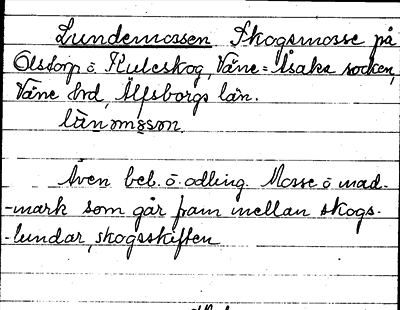 Lundemossen Skogsmosse på
Olstorp ö. Kuleskog, Väne=Åsaka socken,
Väne hrd, Älfsborgs län.
länmoson.
Även beb. ö. odling. Mosse ö mad-
-mark som går fram mellan skogs-
-lundar, skogsskiften